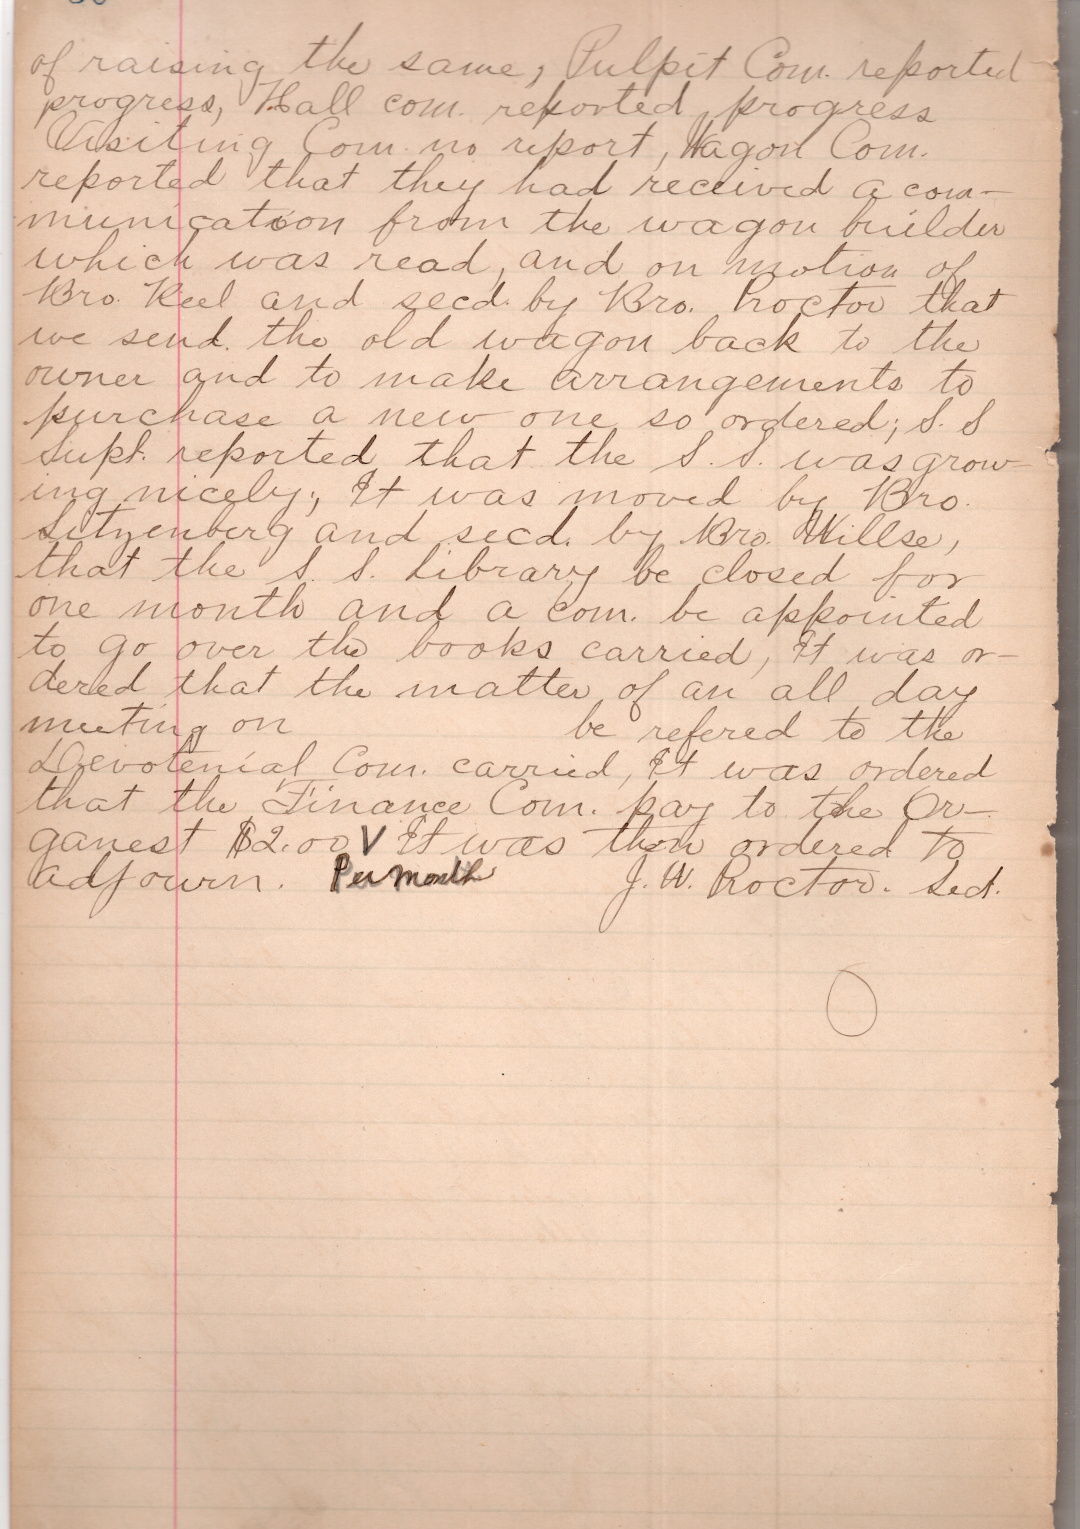 of raising the same, Pulpit Com. reported
progress, Hall com. reported progress
Visiting Com. no report, Wagon Com.
reported that they had received a com-
munication from the wagon builder
which was read, and on motion of
Bro. Keel and secd. by Bro. Proctor that
we send the old wagon back to the
owner and to make arrangements to
purchase a new one so ordered; S. S
Supt. reported that the S. S. was grow-
ing nicely; It was moved by Bro.
Sitzenberg and secd. by Bro. Willse,
that the S. S. Library be closed for
one month and a com. be appointed
to go over the books carried, It was or-
dered that the matter of an all day
meeting on be refered to the
Devotenial Com. carried, It was ordered
that the Finance Com. pay to the Or-
ganest $2.00 V It was then ordered to
adjourn. Per Month J. W. Proctor. Sect.